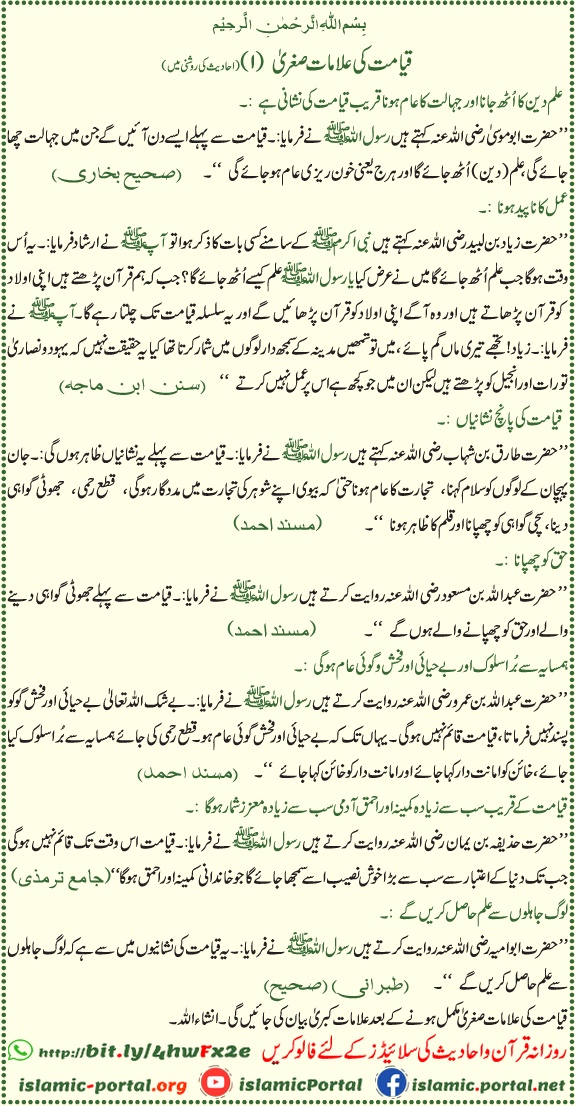 بِسْمِ اللهِ الرَّحْمٰنِ الرَّحِيْمِ
قیامت کی علامات صغریٰ (۱) (احادیث کی روشنی میں)
علم دین کا اُٹھ جانا اور جہالت کا عام ہونا قریب قیامت کی نشانی ہے :۔
’’حضرت ابو موسیٰ رضی اللہ عنہ کہتے ہیں رسول اللہ ﷺ نے فرمایا:۔ قیامت سے پہلے ایسے دن آئیں گے جن میں جہالت چھا
جائے گی، علم (دین) اُٹھ جائے گا اور ہرج یعنی خون ریزی عام ہو جائے گی ‘‘۔ (صحیح بخاری)
عمل کا ناپید ہونا :۔
’’حضرت زیاد بن لبید رضی اللہ عنہ کہتے ہیں نبی اکرم ﷺ کے سامنے کسی بات کا ذکر ہوا تو آپ ﷺ نے ارشاد فرمایا:۔ یہ اُس
وقت ہوگا جب علم اُٹھ جائے گا میں نے عرض کیا یا رسول اللہ ﷺ علم کیسے اُٹھ جائے گا؟ جب کہ ہم قرآن پڑھتے ہیں اپنی اولاد
کو قرآن پڑھاتے ہیں اور وہ آگے اپنی اولاد کو قرآن پڑھائیں گے اور یہ سلسلہ قیامت تک چلتا رہے گا۔ آپ ﷺ نے
فرمایا:۔ زیاد! تجھے تیری ماں گم پائے، میں تو تمھیں مدینہ کے سمجھ دار لوگوں میں شمار کرتا تھا کیا یہ حقیقت نہیں کہ یہود و نصاریٰ
تورات اور انجیل کو پڑھتے ہیں لیکن ان میں جو کچھ ہے اس پر عمل نہیں کرتے ‘‘ (سنن ابن ماجہ)
قیامت کی پانچ نشانیاں :۔
’’حضرت طارق بن شہاب رضی اللہ عنہ کہتے ہیں رسول اللہ ﷺ نے فرمایا:۔ قیامت سے پہلے یہ نشانیاں ظاہر ہوں گی:۔ جان
پہچان کے لوگوں کو سلام کہنا، تجارت کا عام ہونا حتیٰ کہ بیوی اپنے شوہر کی تجارت میں مددگار ہوگی، قطع رحمی، جھوٹی گواہی
دینا، سچی گواہی کو چھپانا اور قلم کا ظاہر ہونا ‘‘۔ (مسند احمد)
حق کو چھپانا :۔
’’حضرت عبداللہ بن مسعود رضی اللہ عنہ روایت کرتے ہیں رسول اللہ ﷺ نے فرمایا:۔ قیامت سے پہلے جھوٹی گواہی دینے
والے اور حق کو چھپانے والے ہوں گے ‘‘۔ (مسند احمد)
ہمسایہ سے بُرا سلوک اور بے حیائی اور فحش و گوئی عام ہوگی :۔
’’حضرت عبداللہ بن عمرو رضی اللہ عنہ روایت کرتے ہیں رسول اللہ ﷺ نے فرمایا:۔ بے شک اللہ تعالیٰ بے حیائی اور فحش گو کو
پسند نہیں فرماتا، قیامت قائم نہیں ہوگی۔ یہاں تک کہ بے حیائی اور فحش گوئی عام ہو۔ قطع رحمی کی جائے ہمسایہ سے بُرا سلوک کیا
جائے، خائن کو امانت دار کہا جائے اور امانت دار کو خائن کہا جائے ‘‘۔ (مسند احمد)
قیامت کے قریب سب سے زیادہ کمینہ اور احمق آدمی سب سے زیادہ معزز شمار ہوگا :۔
’’حضرت حذیفہ بن یمان رضی اللہ عنہ روایت کرتے ہیں رسول اللہ ﷺ نے فرمایا:۔ قیامت اس وقت تک قائم نہیں ہوگی
جب تک دنیا کے اعتبار سے سب سے بڑا خوش نصیب اسے سمجھا جائے گا جو خاندانی کمینہ اور احمق ہوگا‘‘ (جامع ترمذی)
لوگ جاہلوں سے علم حاصل کریں گے :۔
’’حضرت ابو امیہ رضی اللہ عنہ روایت کرتے ہیں رسول اللہ ﷺ نے فرمایا:۔ یہ قیامت کی نشانیوں میں سے ہے کہ لوگ جاہلوں
سے علم حاصل کریں گے ‘‘۔ (طبرانی) (صحیح)
قیامت کی علامات صغریٰ مکمل ہونے کے بعد علامات کبریٰ بیان کی جائیں گی۔ انشاء اللہ۔
روزانہ قرآن و احادیث کی سلائیڈز کے لئے فالو کریں http://bit.ly/4hwFx2e
islamic-portal.org islamicPortal islamic.portal.net